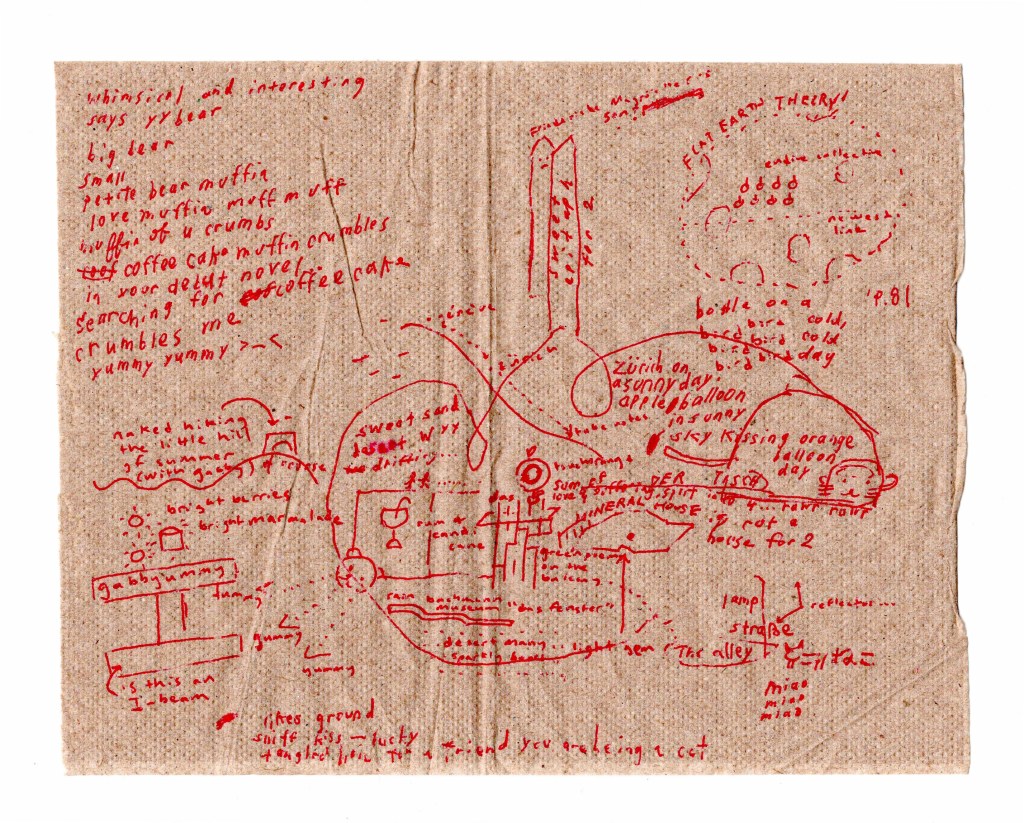 whimsical and interesting
says yy bear
big bear
small
petite bear muffin
love muffin muff muff
muffin of u crumbs
coffee cake muffin crumbles
in your debut novel..
searching for coffee cake
crumbles me
yummy yummy >_<
Friederike
son
FLAT EARTH THEORY!
endive collective
newest
link
'P.81
bottle on a
bird bird cold,
bird bird cold
bird bird day
genève
zürich
Zürich on
a sunny day.
apple balloon
in sunny
sky kissing orange
balloon
day
naked hiking
the little hill
of summer
(with gabby) of course
bright berries
bright marmalade
gabbyummy
yummy
gummy
yummy
is this an
I-beam
sweet sand
desert w yy
drifting...
rum or
candy
cane
das
sum of
DER TISCH
love
split into 4
MINERAL HOUSE
is not a
house for 2
green peony
on the
balcony
rain bachmann
museum
"das fenster"
desert many
light gem
The alley
lamp
straße
reflector...
miao
miao
miao
likes ground
sniff kiss — lucky
tangled
a friend you are being a cat